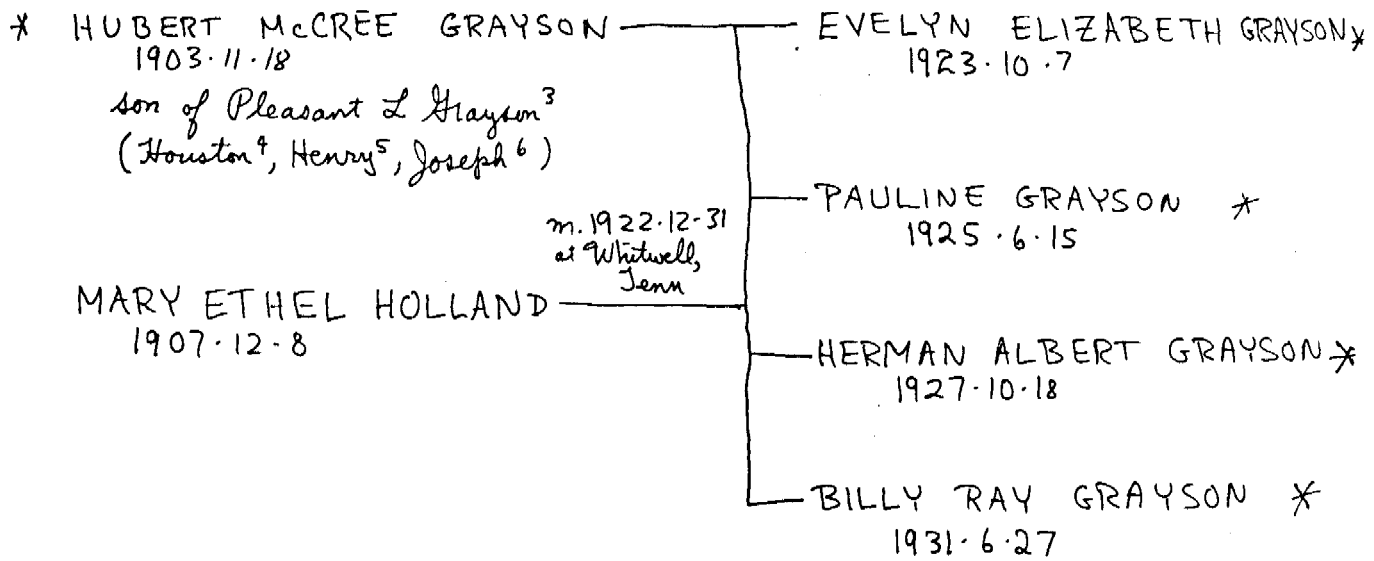 * HUBERT McCREE GRAYSON
1903·11·18
son of Pleasant L Grayson³
(Houston⁴, Henry⁵, Joseph⁶)
m. 1922·12-31
at Whitwell,
Tenn
MARY ETHEL HOLLAND
1907·12-8
EVELYN ELIZABETH GRAYSON*
1923·10·7
PAULINE GRAYSON *
1925·6·15
HERMAN ALBERT GRAYSON*
1927·10·18
BILLY RAY GRAYSON *
1931·6·27